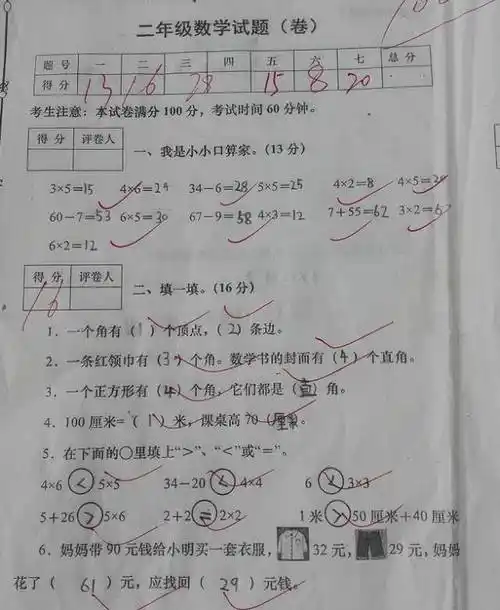 二年级数学试题（卷）
题 号 一 二 三 四 五 六 七 总 分
得 分 13 16 28 15 8 20
考生注意：本试卷满分 100 分，考试时间 60 分钟。
得 分 评卷人
一、我是小小口算家。（13 分）
3×5=15 4×6=24 34－6=28 5×5=25 4×2=8 4×5=20
60－7=53 6×5=30 67－9=58 4×3=12 7＋55=62 3×2=6
6×2=12
得 分 评卷人
16
二、填一填。（16 分）
1．一个角有（1）个顶点，（2）条边。
2．一条红领巾有（3）个角。数学书的封面有（4）个直角。
3．一个正方形有（4）个角，它们都是（直）角。
4．100 厘米=（1）米，课桌高 70（厘米）。
5．在下面的○里填上“>”、“<”或“=”。
4×6 < 5×5 34－20 < 4×4 6 < 3×3
5＋26 > 5×6 2＋2 = 2×2 1 米 > 50 厘米＋40 厘米
6．妈妈带 90 元钱给小明买一套衣服， 32 元， 29 元，妈妈
花了（ 61 ）元，应找回（ 29 ）元钱。